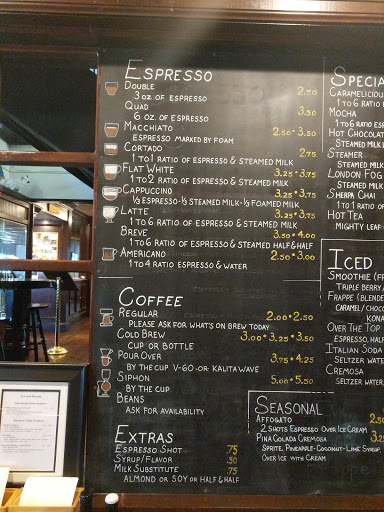 ESPRESSO
DOUBLE 2.50
3 OZ OF ESPRESSO
QUAD 3.50
6 OZ OF ESPRESSO
MACCHIATO 2.50 • 3.50
ESPRESSO MARKED BY FOAM
CORTADO 2.75
1 TO 1 RATIO OF ESPRESSO & STEAMED MILK
FLAT WHITE 3.25 • 3.75
1 TO 2 RATIO OF ESPRESSO & STEAMED MILK
CAPPUCCINO 3.25 • 3.75
⅓ ESPRESSO-⅓ STEAMED MILK-⅓ FOAMED MILK
LATTE 3.25 • 3.75
1 TO 6 RATIO OF ESPRESSO & STEAMED MILK
BREVE 3.50 • 4.00
1 TO 6 RATIO OF ESPRESSO & STEAMED HALF & HALF
AMERICANO 2.50 • 3.00
1 TO 4 RATIO ESPRESSO & WATER
COFFEE
REGULAR 2.00 • 2.50
PLEASE ASK FOR WHAT'S ON BREW TODAY
COLD BREW 3.00 • 3.25 • 3.50
CUP OR BOTTLE
POUR OVER 3.75 • 4.25
BY THE CUP V-60 OR KALITA WAVE
SIPHON 5.00 • 5.50
BY THE CUP
BEANS
ASK FOR AVAILABILITY
EXTRAS
ESPRESSO SHOT .75
SYRUP/FLAVOR .50
MILK SUBSTITUTE .75
ALMOND OR SOY OR HALF & HALF
SPECIA
CARAMELICIOU
1 TO 6 RATIO E
MOCHA
1 TO 6 RATIO ESP
HOT CHOCOLAT
STEAMED MILK
STEAMER
STEAMED MILK &
LONDON FOG
STEAMED MILK
SHERPA CHAI
1 TO 1 RATIO OF
HOT TEA
MIGHTY LEAF
ICED
SMOOTHIE (FR
TRIPLE BERRY /
FRAPPE (BLENDE
CARAMEL / CHOC
KONA
OVER THE TOP
ESPRESSO, HALF
ITALIAN SODA
SELTZER WATER
CREMOSA
SELTZER WATER
SEASONAL
AFFOGATO 2.50
2 SHOTS ESPRESSO OVER ICE CREAM
PINA COLADA CREMOSA 3.25
SPRITE, PINEAPPLE-COCONUT-LIME SYRUP,
OVER ICE WITH CREAM